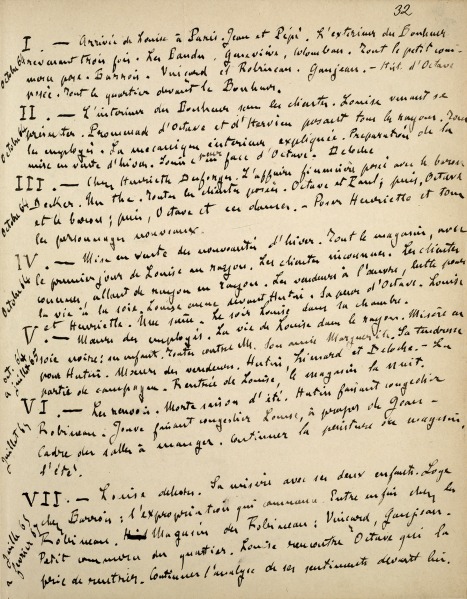 32
Octobre 64
I. — Arrivée de Louise à Paris. Jean et Pépé. L'extérieur du Bonheur
revenant trois fois. Les Baudu, Geneviève, Colomban. Tout le petit com-
merce posé. Bourrois. Vinçard et Robineau. Gaujean. — Hist. d'Octave
posé. Tout le quartier devant le Bonheur.
Octobre 64
II — L'intérieur du Bonheur sans les clients. Louise venant se
présenter. Promenade d'Octave et d'Hervieu posant tous les rayons. Tous
les employés. La mécanique intérieure expliquée. Préparation de la
mise en vente d'hiver. Louise pour face d'Octave. Deloche
Octobre 64
III — Chez Henriette Desforges. L'affaire financière posée avec le baron
Decker. Un thé. Toutes les clientes posées. Octave et Paul; puis, Octave
et le baron; puis, Octave et ces dames. — Poser Henriette et tous
les personnages nouveaux.
Octobre 64
IV — Mise en vente des nouveautés d'hiver. Tout le magasin, avec
le premier jour de Louise au rayon. Les clientes inconnues. Les clientes
connues, allant de rayon en rayon. Les vendeurs à l'œuvre, lutte pour
la vie à la soie. Louise amenée devant Hutin. Sa peur d'Octave. Louise
et Henriette. Une scène. Le soir Louise dans sa chambre.
oct. 64 à juillet 65
V — Mœurs des employés. La vie de Louise dans le rayon. Misère en
soie noire; un enfant. Toutes contre elle. Son amie Marguerite. Sa tendresse
pour Hutin. Mœurs des vendeurs. Hutin, Liénard et Deloche. — La
partie de campagne. Rentrée de Louise, le magasin la nuit.
Juillet 65
VI. — Les renvois. Morte saison d'été. Hutin faisant congédier
Robineau. Jouve faisant congédier Louise, à propos de Jean —
Cadre des salles à manger. Continuer la peinture du magasin,
l'été.
Juillet 65 à février 67
VII. — Louise dehors. Sa misère avec ses deux enfants. Loge
chez Bourrois; l'expropriation qui commence. Entre enfin chez les
Robineau. Magasin des Robineau; Vinçard, Gaujean.
Petit commerce du quartier. Louise rencontre Octave qui la
prie de rentrer. Continuer l'analyse de ses sentiments devant lui.